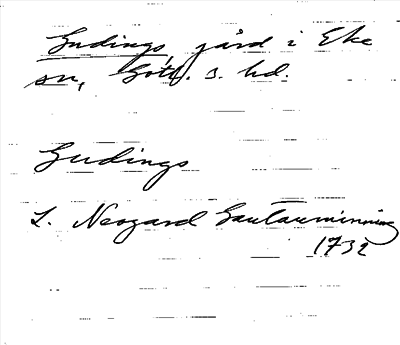 Gudings, gård i Eke
sn, Gotl. s. hd.
Gudings
L. Neogard Gautauminning
1732